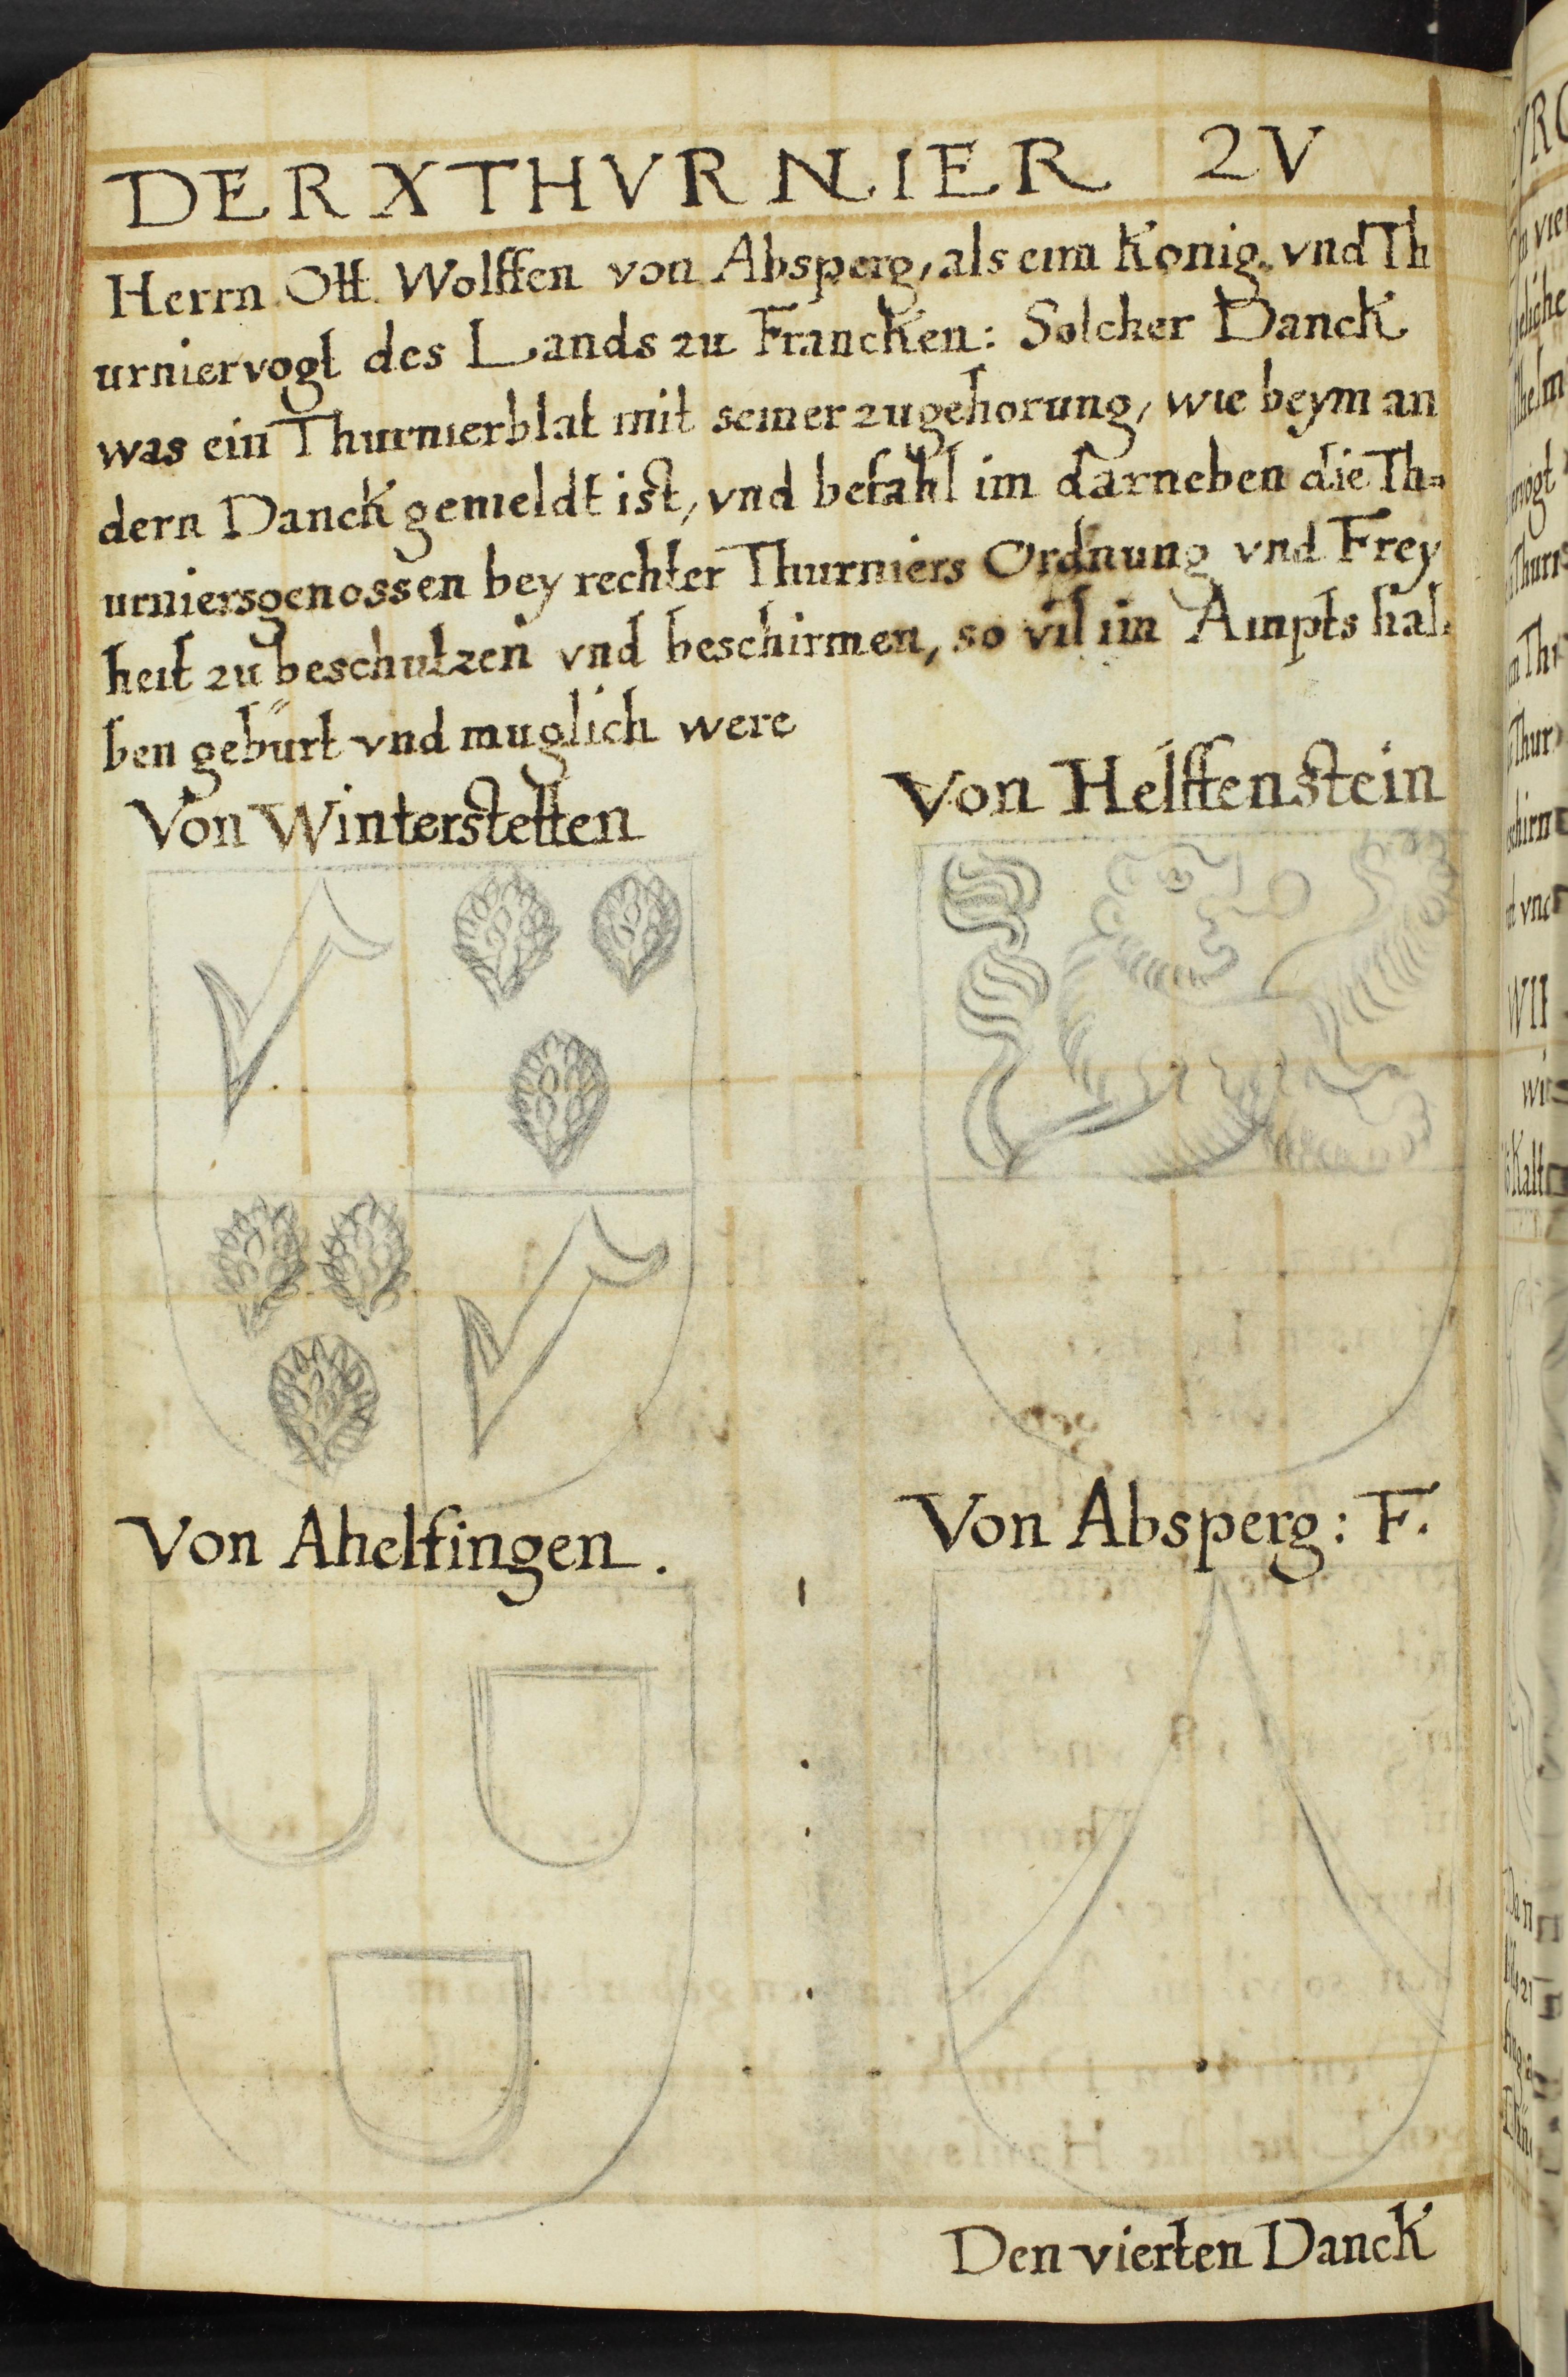 DER X THVRNIER 2V
Herrn Ott Wolffen von Absperg, als eim Konig. vnd Th
urniervogt des Lands zu Francken: Solcher Danck
was ein Thurnierblat mit seiner zugehorung, wie beym an
dern Danck gemeldt ist, vnd befahl im darneben die Th=
urniersgenossen bey rechter Thurniers Ordnung vnd Frey
heit zu beschutzen vnd beschirmen, so vil im Ampts hal.
ben gebürt vnd muglich were
Von Winterstetten
Von Helffenstein
Von Ahelfingen.
Von Absperg: F.
Den vierten Danck